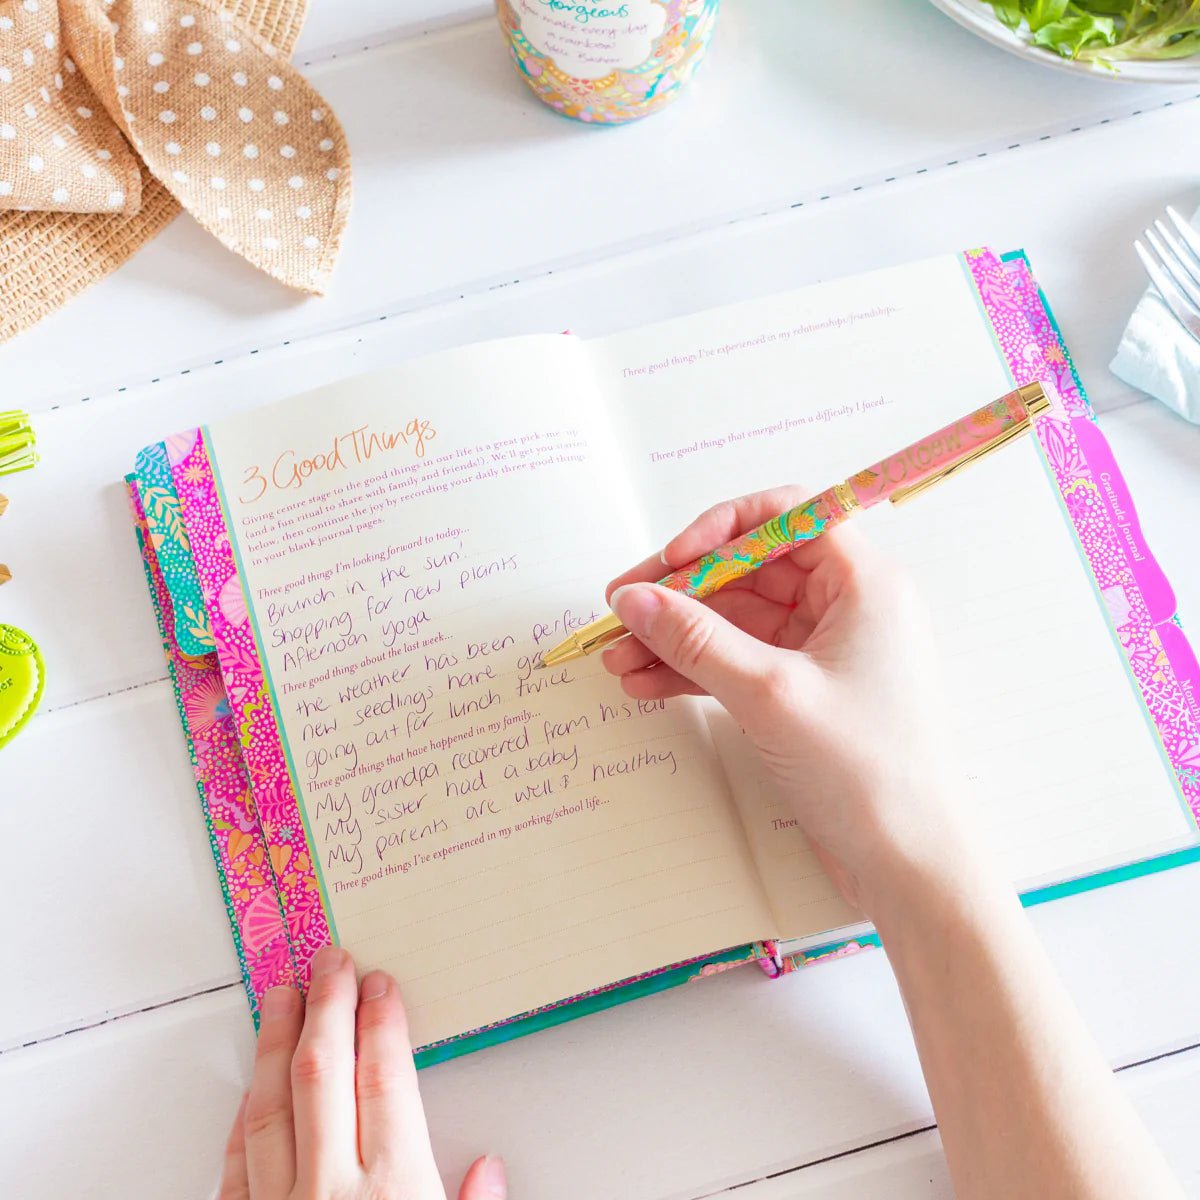 Gorgeous
You make every day
a rainbow
3 Good Things
Giving centre stage to the good things in our life is a great pick-me-up
(and a fun ritual to share with family and friends!). We'll get you started
below, then continue the joy by recording your daily three good things
in your blank journal pages.
Three good things I'm looking forward to today...
Brunch in the sun!
Shopping for new plants
Afternoon yoga
Three good things about the last week...
the weather has been perfect
new seedlings have
going out for lunch twice
Three good things that have happened in my family...
My grandpa recovered from his fall
My sister had a baby
My parents are well & healthy
Three good things I've experienced in my working/school life...
Three good things I've experienced in my relationships/friendships...
Three good things that emerged from a difficulty I faced...
Three
...
Bloom
Gratitude Journal